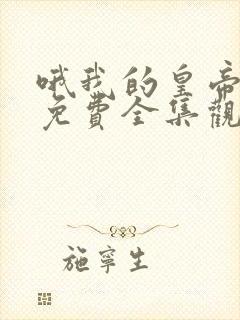 哦我的皇帝
免費全集觀
施寧生